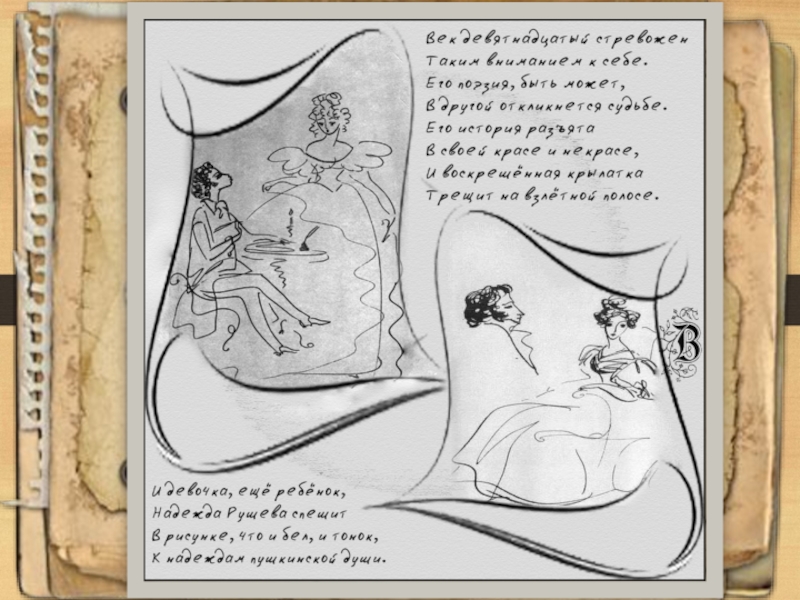 Век девятнадцатый стревожен
Таким вниманием к себе.
Его поэзия, быть может,
В другой откликнется судьбе.
Его история разъята
В своей красе и некрасе,
И воскрешённая крылатка
Трещит на взлётной полосе.
В
И девочка, ещё ребёнок,
Надежда Рушева спешит
В рисунке, что и бел, и тонок,
К надеждам пушкинской души.